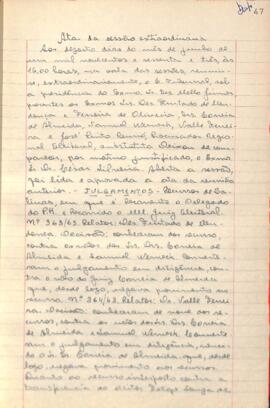 47
Ata da sessão extraordinária
Aos dezoito dias do mês de junho de
um mil novecentos e sessenta e três, às
16,00 horas, na sala das sessões, reuniu-
se, extraordinariamente, o E. Tribunal, sob
a presidência do Exmo. Sr. Des.
presentes os Exmos. Srs. Des. Furtado de Men-
donça e Ferreira de Oliveira, Drs. Corrêa
de Almeida, Valle Ferrei-
ra e José Pinto Renó, Procurador Regio-
nal Eleitoral, substituto. Deixou de com-
parecer, por motivo justificado, o Exmo.
Sr. Dr. Cesar Silveira. Aberta a sessão,
foi lida e aprovada a ata da reunião
anterior. - JULGAMENTOS - Recursos de
em que é Recorrente o Delegado
do P.R. e Recorrido o MM. Juiz Eleitoral.
Nº 363/63. Relator: Des. Furtado de Men-
donça. Decisão: conheceram do recurso
contra os votos dos Srs. Drs. Corrêa de
Almeida e
ram o julgamento em diligência, con-
tra o voto do Juiz Corrêa de Almeida
que, desde logo, negava provimento ao
recurso. Nº 364/63. Relator: Dr. Valle Ferrei-
ra. Decisão: conheceram de
cursos contra os votos dos Srs. Drs. Corrêa
de Almeida e
ram o julgamento em diligência, venci-
do o Dr. Corrêa de Almeida que, desde
logo, negava provimento aos recursos.
Quanto ao recurso interposto contra a
transferência do eleitor